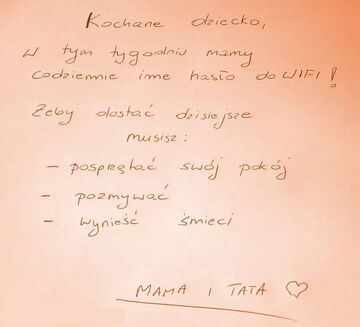 Kochane dziecko,
W tym tygodniu mamy
codziennie inne hasło do WIFI!
Żeby dostać dzisiejsze
musisz:
- posprzątać swój pokój
- pozmywać
- wynieść śmieci
MAMA I TATA ♡